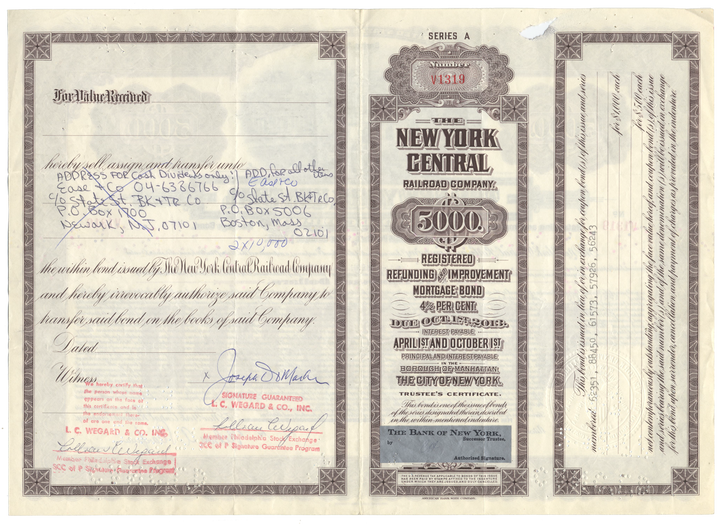 For Value Received
hereby sell assign and transfer unto
ADDRESS FOR Cash Dividends only: 
Ease & Co 04-6386766
c/o State St. BK & TR Co
P.O. Box 1700
Newark, N.J. 07101
ADD. for all other
Ease & Co
c/o State St BK & TR Co.
P.O. Box 5006
Boston, Mass
02101
2x10,000
the within bond issued by The New York Central Railroad Company
and hereby irrevocably authorize said Company to
transfer said bond on the books of said Company.
Dated
Witness
x Joseph
We hereby certify that
the person whose name
appears on the face of
this certificate and in
of one and the same.
L. C. WEGARD & CO., INC.
Member Philadelphia Stock Exchange
SCC of P Signature Guarantee Program
SIGNATURE GUARANTEED
L. C. WEGARD & CO., INC.
Member Philadelphia Stock Exchange
SCC of P Signature Guarantee Program
SERIES A
Number
V1319
THE
NEW YORK
CENTRAL
RAILROAD COMPANY.
5000
REGISTERED
REFUNDING AND IMPROVEMENT
MORTGAGE BOND
4½ PER CENT.
DUE OCT. 1ST. 2013.
INTEREST PAYABLE
APRIL 1ST AND OCTOBER 1ST
PRINCIPAL AND INTEREST PAYABLE
IN THE
BOROUGH OF MANHATTAN
THE CITY OF NEW YORK.
TRUSTEE'S CERTIFICATE.
This bond is one of the issue of bonds
of the series designated therein, described
in the within mentioned indenture.
THE BANK OF NEW YORK,
Successor Trustee,
by
Authorized Signature.
This bond is issued in lieu of or in exchange for coupon bond(s) of this issue and series
numbered 62351, 86450, 61573, 57926, 56243
for $1,000 each
for $500 each
not contemporaneously outstanding aggregating the face value hereof and coupon bond(s) of this issue
and series bearing the same number(s) and of the same denomination(s) will be issued in exchange
for this bond upon surrender, cancellation and payment of charges as provided in the indenture